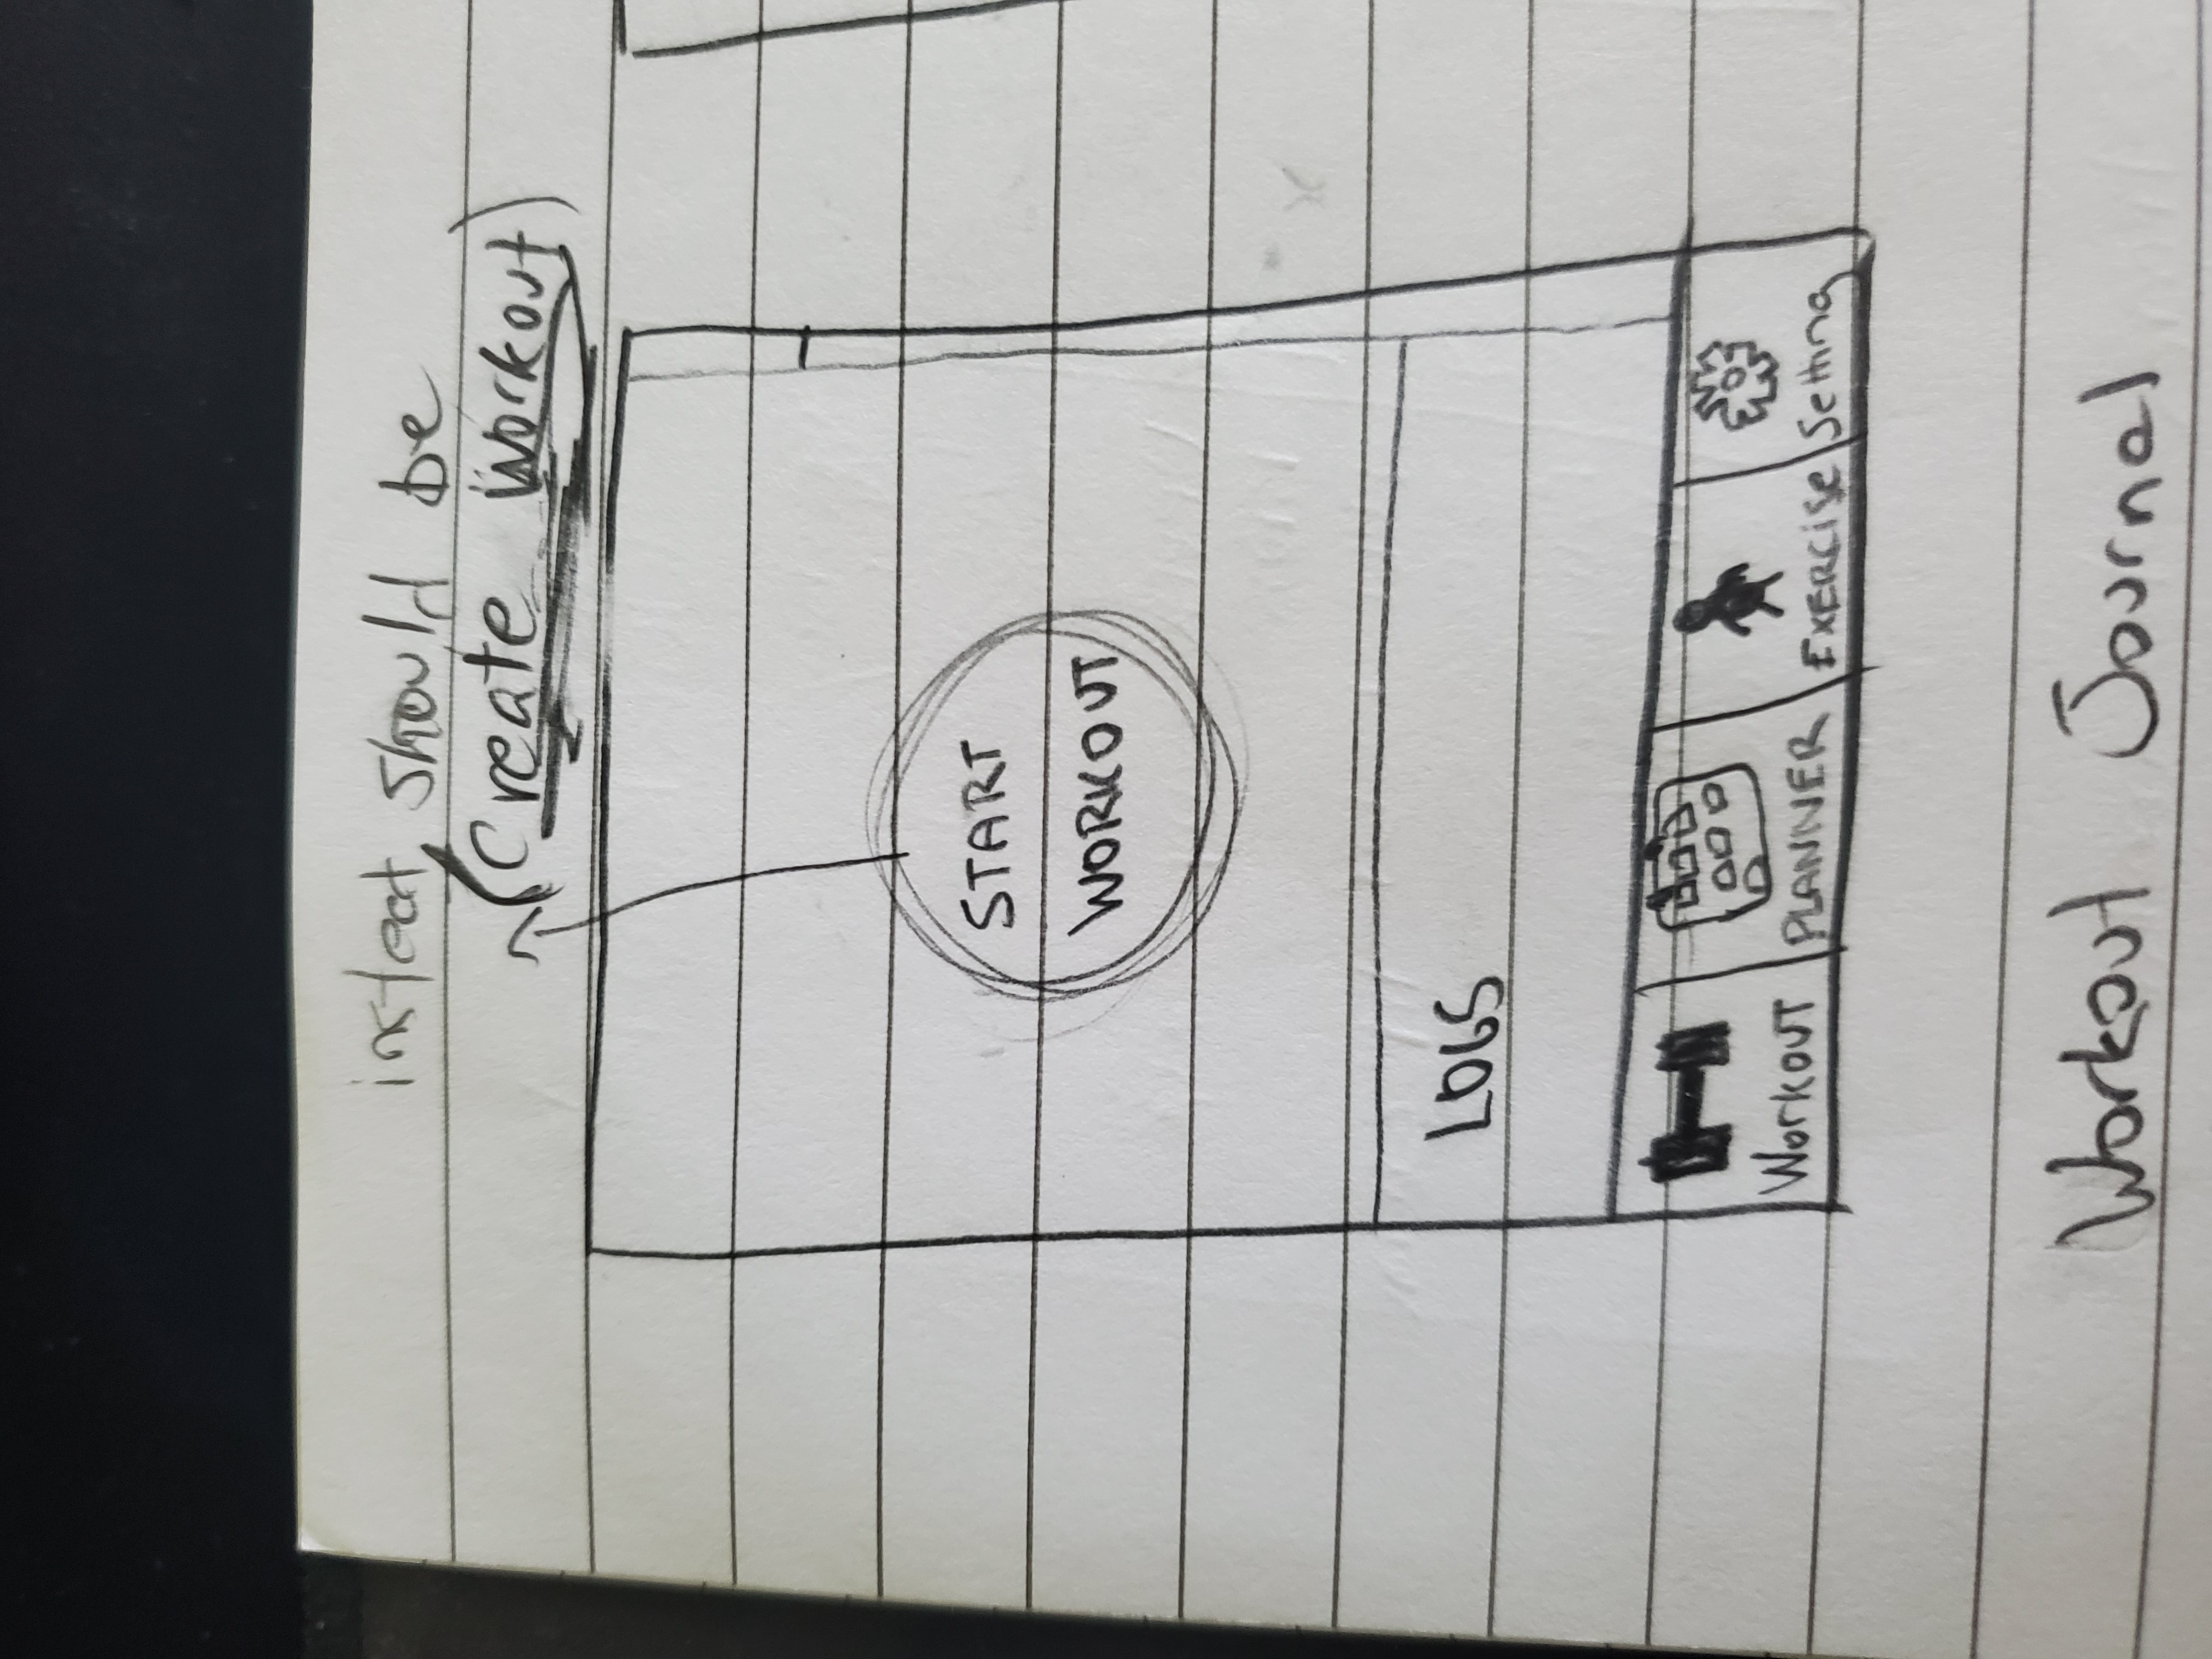 instead should be
(Create Workout)
START
WORKOUT
LOGS
Workout
PLANNER
EXERCISE
Setting
Workout Journal